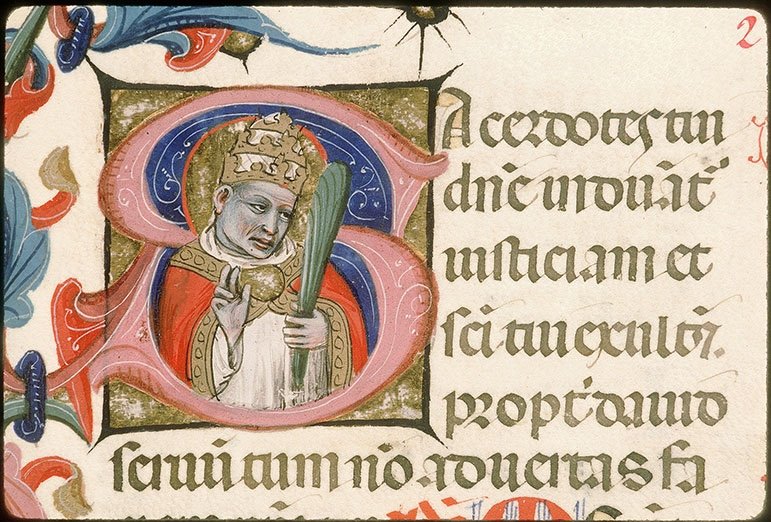 SAcerdotes tui
dn̄e induāt
iusticiam et
sc̄i tui exultēt.
propt̄ dauid
seruū tuum nō aduertas fa